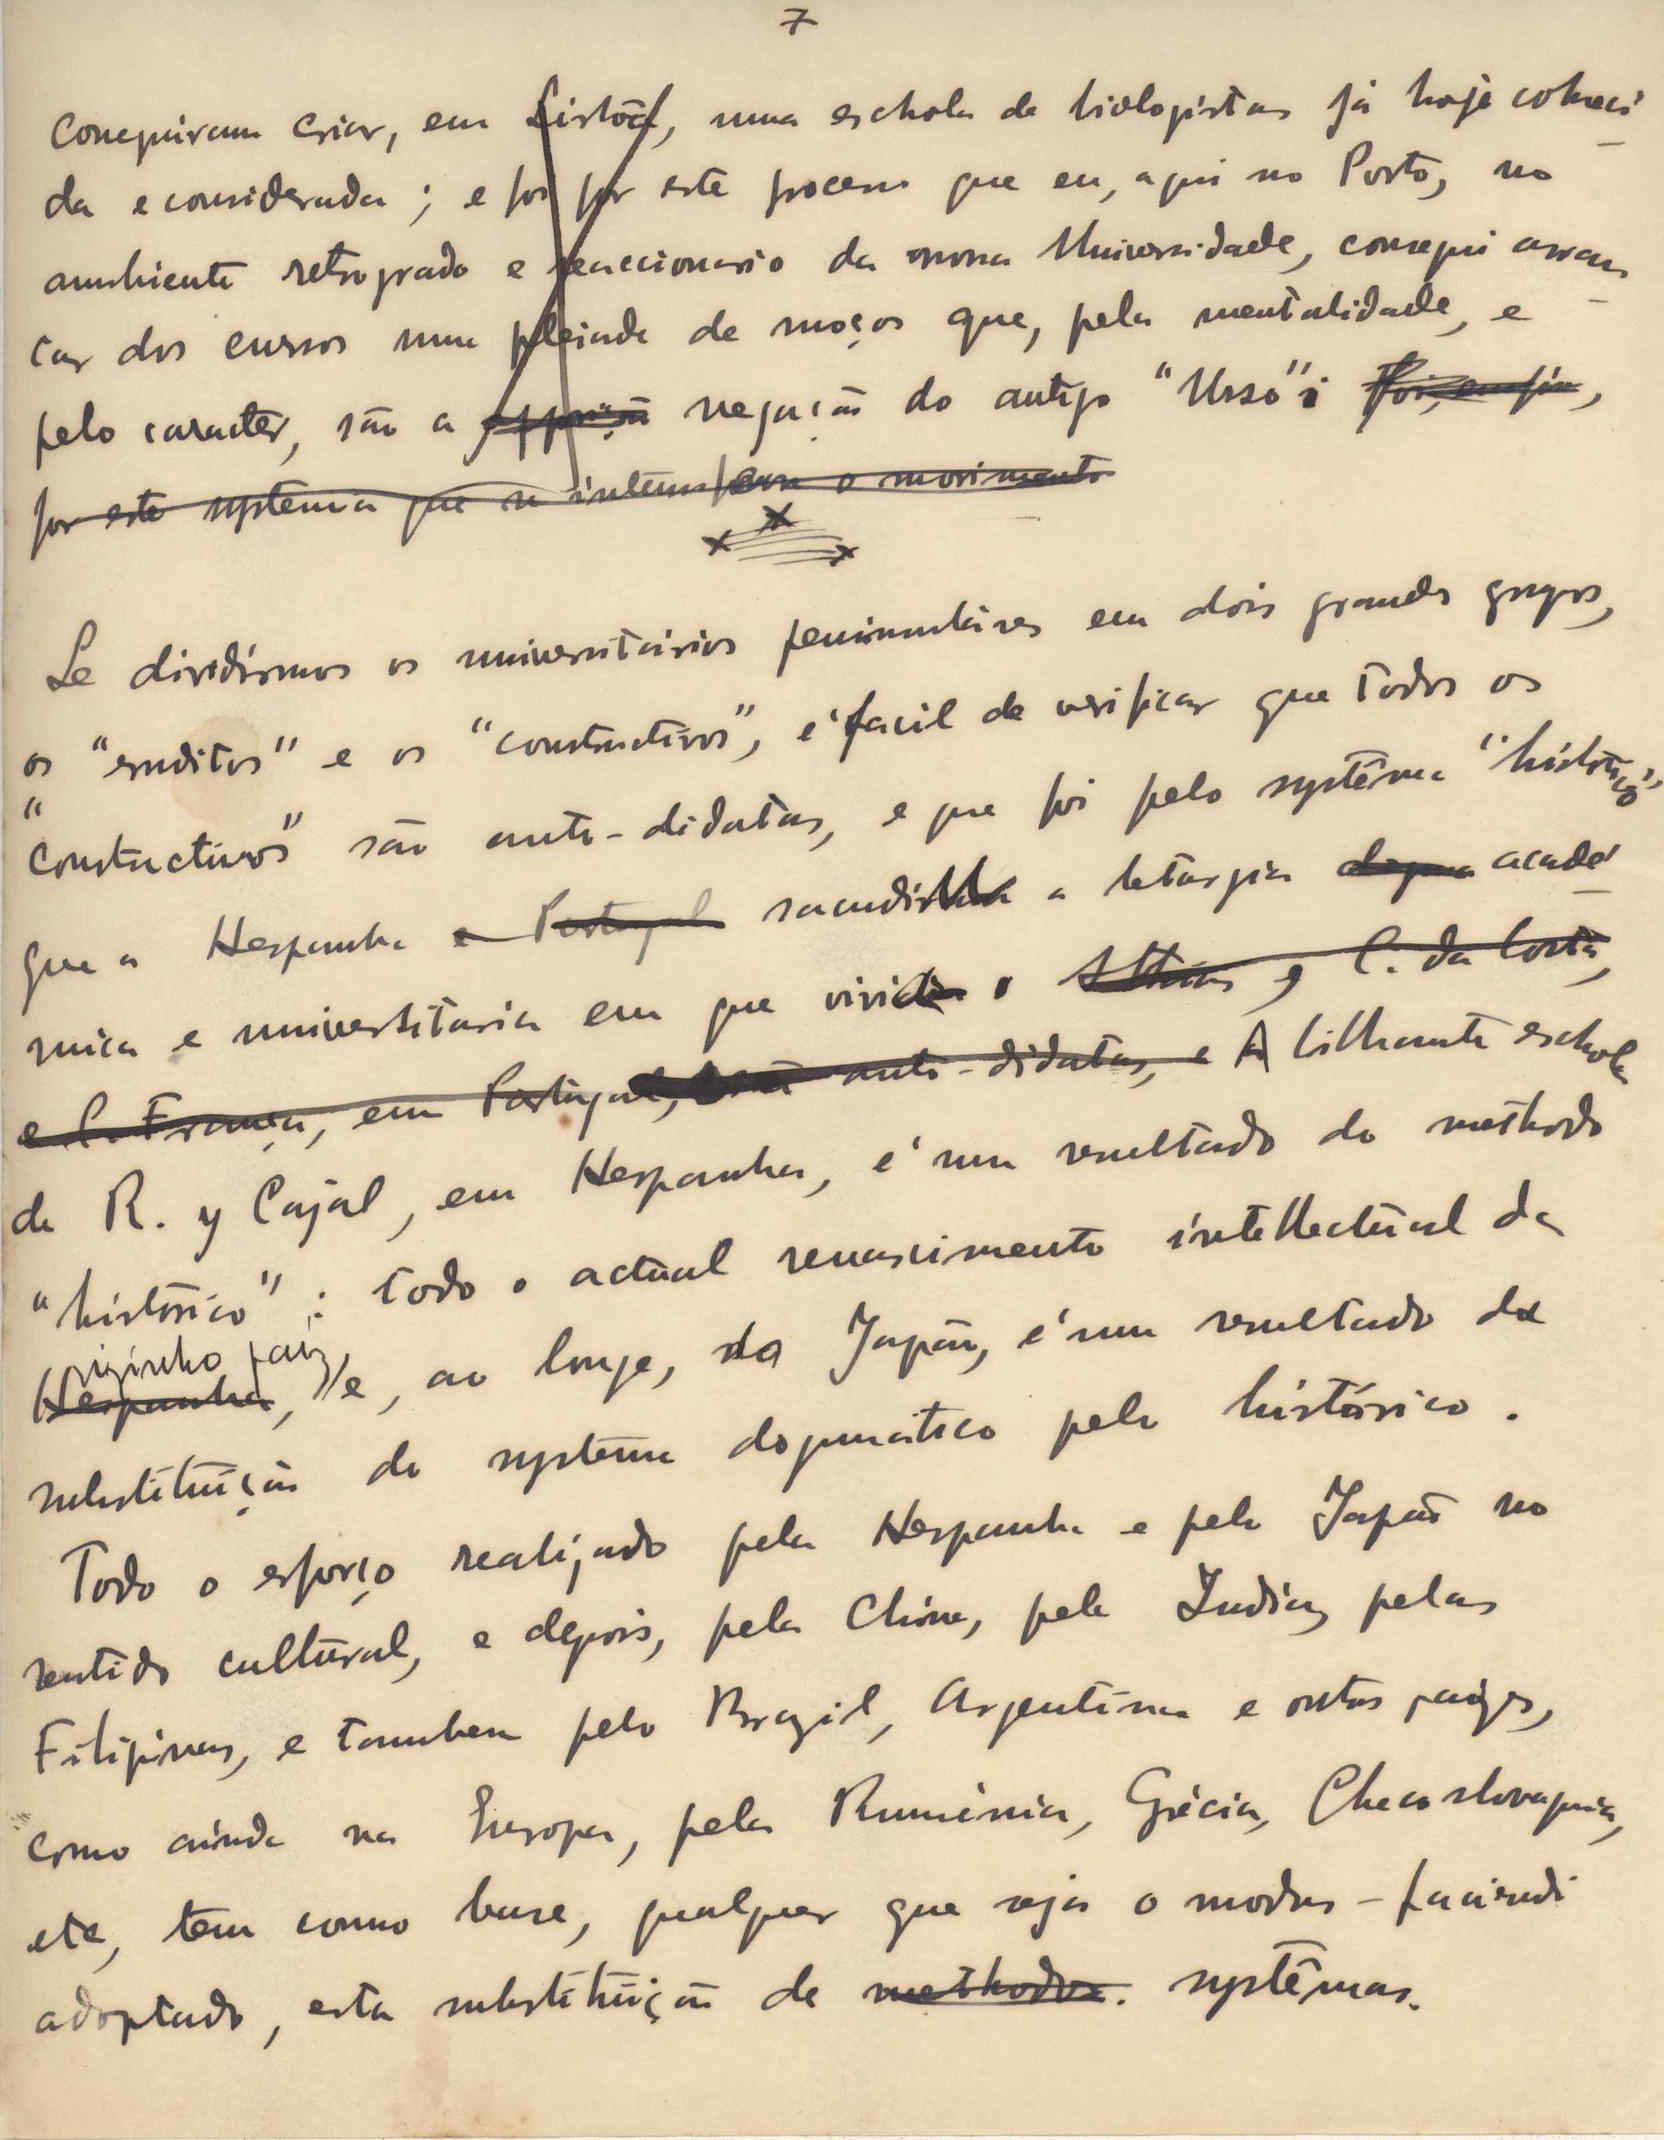 7
conseguiram criar, em Lisbôa, uma eschola de biologistas já hoje conheci-
da e considerada; e foi por este processo que eu, aqui no Porto, no
ambiente retrogrado e reaccionario da nossa Universidade, consegui arran-
car dos cursos uma pleiade de moços que, pela mentalidade, e
pelo caracter, são a opposição negação do antigo "Urso"; Foi, enfim,
por este systema que se o movimento
Se dividirmos os universitários peninsuláres em dois grandes grupos,
os "eruditos" e os "constructivos", é facil de verificar que todos os
"constructivos" são auto-didatas, e que foi pelo systêma "histórico"
que a Hespanha e Portugal sacudiu a letargia acadé-
mica e universitaria em que vivia. Athias, e C. da Costa,
e C. França, em Portugal, são auto-didatas, e A bilhante eschola
de R. y Cajal, em Hespanha, é um resultado do methodo
"histórico": todo o actual renascimento intellectual da
visinho paiz,
Hespanha, e, ao longe, do Japão, é um resultado da
substituição do systema dogmatico pelo histórico.
Todo o esforço realizado pela Hespanha e pelo Japão no
sentido cultural, e depois, pela China, pela India, pelas
Filipinas, e tambem pelo Brazil, Argentina e outros paizes,
como ainda na Europa, pela Rumenia, Grécia, Checoslovaquia,
etc, tem como base, qualquer que seja o modus-faciendi
adoptado, esta substituição de methodos. systêmas.